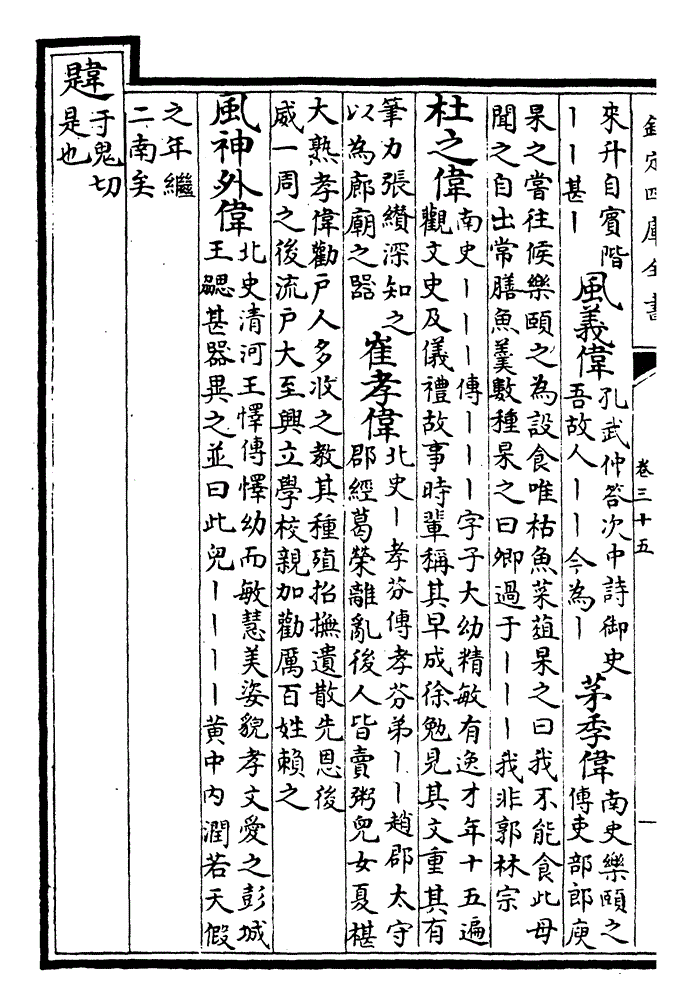 欽定四庫全書
卷三十五
來升自賓階
丨丨甚丨
風義偉
孔武仲答次中詩御史
吾故人丨丨今為丨
茅季偉
南史樂頤之
傳吏部郎庾
杲之嘗往候樂頤之為設食唯枯魚菜葅杲之曰我不能食此母
聞之自出常膳魚羹數種杲之曰卿過于丨丨丨我非郭林宗
杜之偉
南史丨丨丨傳丨丨丨字子大幼精敏有逸才年十五遍
觀文史及儀禮故事時輩稱其早成徐勉見其文重其有
筆力張纘深知之
以為廊廟之器
崔孝偉
北史丨孝芬傳孝芬弟丨丨趙郡太守
郡經葛榮離亂後人皆賣粥兒女夏椹
大熟孝偉勸戸人多收之教其種殖招撫遺散先恩後
威一周之後流戸大至興立學校親加勸厲百姓賴之
風神外偉
北史清河王懌傳懌幼而敏慧美姿貌孝文愛之彭城
王勰甚器異之並曰此兒丨丨丨丨黄中内潤若天假
之年繼
二南矣
韙
于鬼切
是也